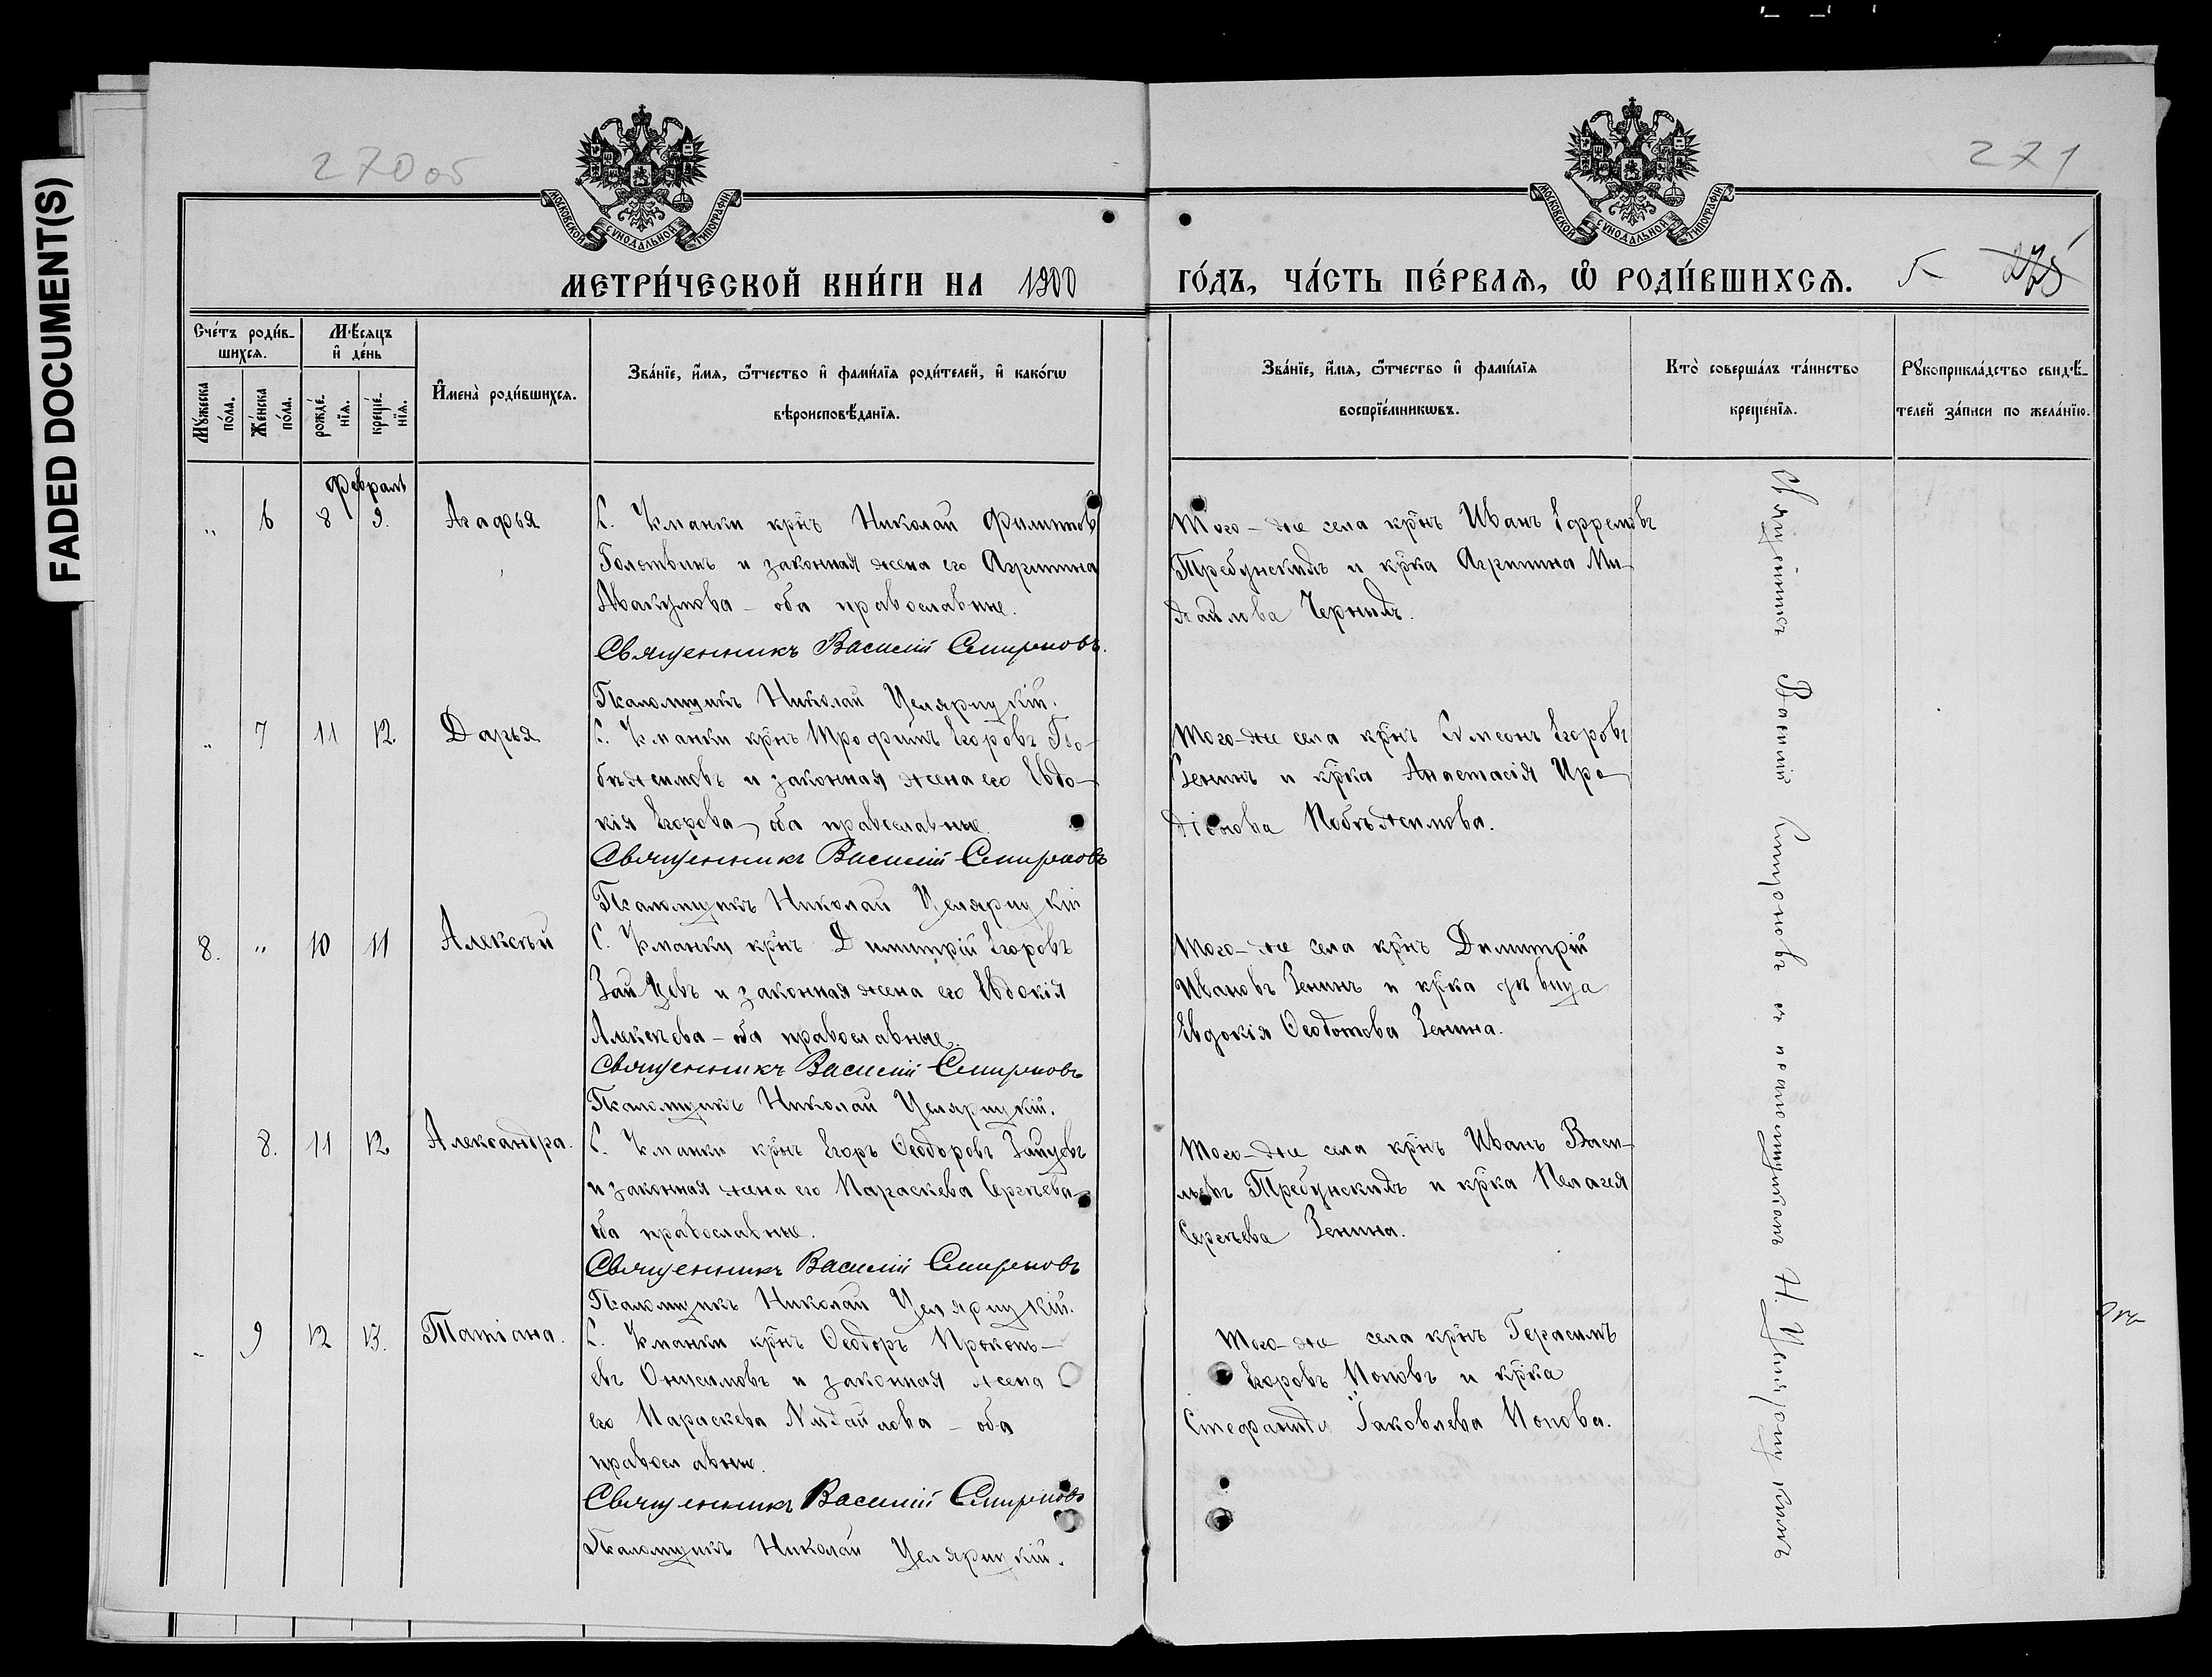 FADED DOCUMENT(S)
270 об
271
МОСКОВСКОЙ СУНОДАЛЬНОЙ ТИПОГРАФІИ
МОСКОВСКОЙ СУНОДАЛЬНОЙ ТИПОГРАФІИ
МЕТРИ́ЧЕСКОЙ КНИ́ГИ НА 1900
ГО́ДЪ, ЧА́СТЬ ПЕ́РВАѦ, Ѡ РОДИ́ВШИХСѦ. 5
Сче́тъ роди́в-
шихсѧ.
Мѣ́сяцъ
и де́нь
Мꙋ́жеска по́ла.
Же́нска по́ла.
рожде́-нїѧ.
креще́-нїѧ.
Имена̀ роди́вшихсѧ.
Зва́нїе, и́мѧ, ѻ́тчество и фами́лїѧ роди́телей, и како́гѡ
вѣроисповѣ́данїѧ.
Зва́нїе, и́мѧ, ѻ́тчество и фами́лїѧ
воспрїе́мникѡвъ.
Кто̀ соверша́лъ та́инство
креще́нїѧ.
Рꙋкоприкла́дство свидѣ́-
телей за́писи по жела́нїю.
Февраль
„ 6 8 9. Агафья
С. Чманки крнъ Николай Филиповъ
Голотвинъ и законная жена его Агрипина
Авакумова – оба православные.
Священникъ Василій Смирновъ.
Псаломщикъ Николай Целярицкій.
Того-же села крнъ Иванъ Ефремовъ
Требунскихъ и крка Агрипина Ми-
хайлова Черныхъ.
„ 7 11 12. Дарья
С. Чманки крнъ Трофимъ Егоровъ По-
бѣжимовъ и законная жена его Евдо-
кія Егорова – оба православные.
Священникъ Василій Смирновъ
Псаломщикъ Николай Целярицкій
Того-же села крнъ Сѵмеонъ Егоровъ
Зенинъ и крка Анастасія Иро-
діонова Побѣжимова.
8. „ 10 11 Алексѣй
С. Чманки крнъ Димитрій Егоровъ
Зайцевъ и законная жена его Евдокія
Алексѣева – оба православные.
Священникъ Василій Смирновъ
Псаломщикъ Николай Целярицкій.
Того-же села крнъ Димитрій
Ивановъ Зенинъ и крка дѣвица
Евдокія Ѳеодотова Зенина.
8. 11 12 Александра.
С. Чманки крнъ Егоръ Ѳеодоровъ Зайцевъ
и законная жена его Параскева Сергѣева –
оба православные.
Священникъ Василій Смирновъ
Псаломщикъ Николай Целярицкій.
Того-же села крнъ Иванъ Васи-
льевъ Требунскихъ и крка Пелагея
Сергѣева Зенина.
„ 9 12 13. Татіана.
С. Чманки крнъ Ѳеодоръ Прокопь-
евъ Онисимовъ и законная жена
его Параскева Михайлова – оба
православные.
Священникъ Василій Смирновъ
Псаломщикъ Николай Целярицкій.
Того-же села крнъ Герасимъ
Егоровъ Поповъ и крка
Стефанида Іаковлева Попова.
Священникъ Василій Смирновъ съ псаломщикомъ Н. Целярицкимъ